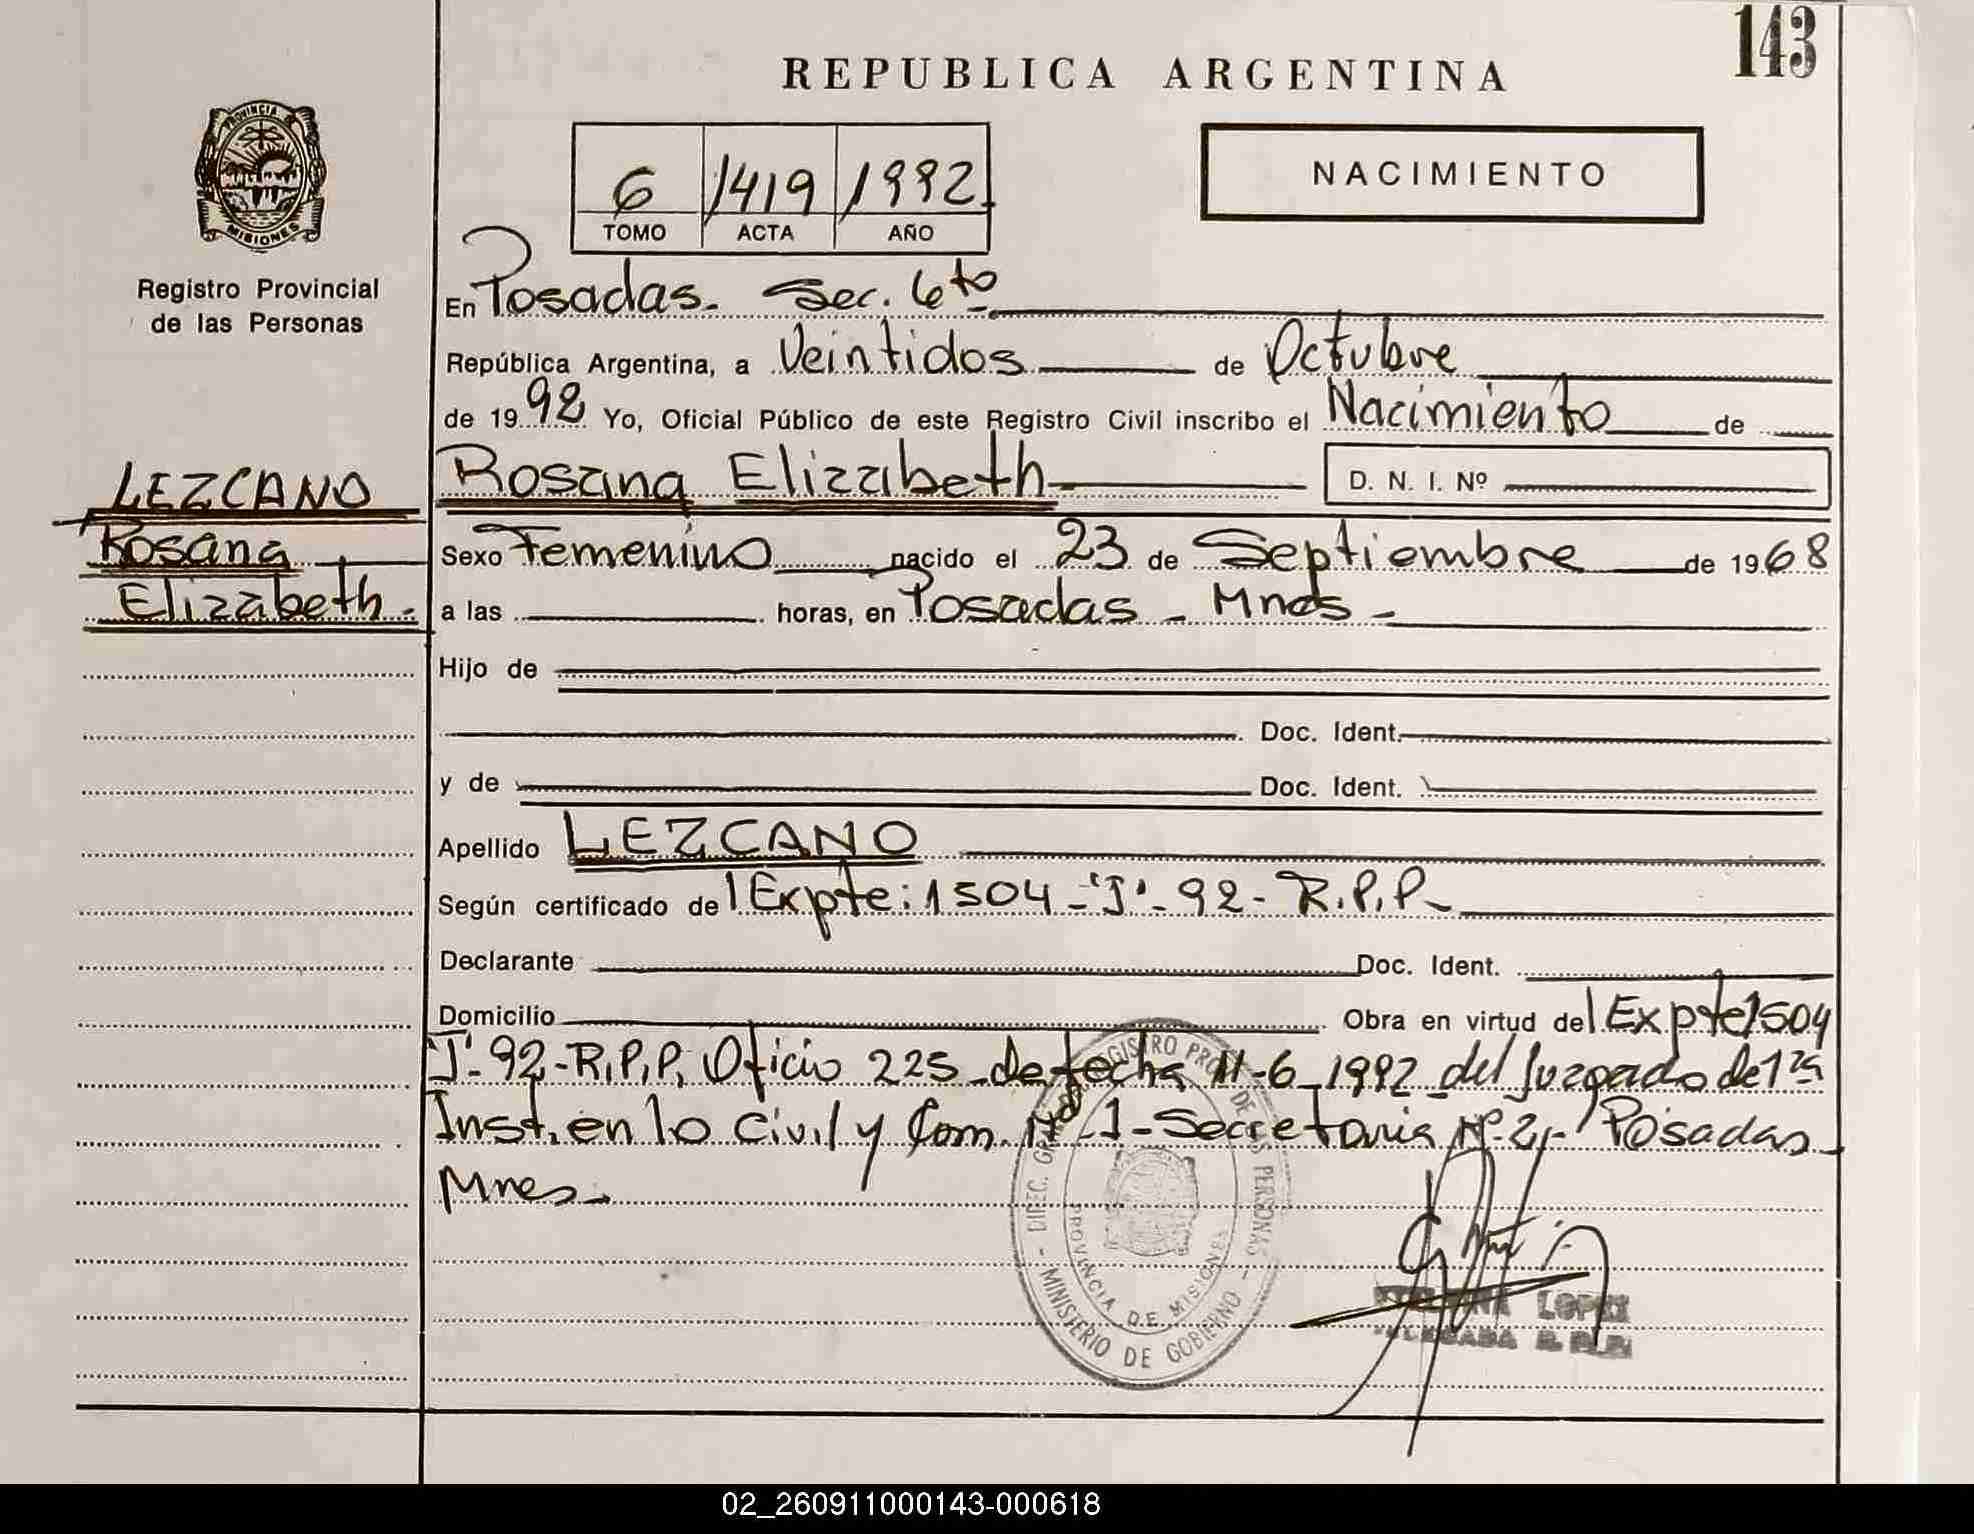 143
REPUBLICA ARGENTINA
PROVINCIA DE
MISIONES
Registro Provincial
de las Personas
NACIMIENTO
6 1419 1992
TOMO ACTA AÑO
En Posadas. Sec. 6to
República Argentina, a Veintidos de Octubre
de 1992 Yo, Oficial Público de este Registro Civil inscribo el Nacimiento de
Rosana Elizabeth D. N. I. Nº
LEZCANO
Rosana
Elizabeth.
Sexo Femenino nacido el 23 de Septiembre de 1968
a las horas, en Posadas - Mnes -
Hijo de
Doc. Ident.
y de Doc. Ident.
Apellido LEZCANO
Según certificado del Expte: 1504 - "J" - 92 - R.P.P.
Declarante Doc. Ident.
Domicilio Obra en virtud del Expte 1504
"J"- 92 - R.P.P. Oficio 225 - de fecha 11-6-1992 del Juzgado de 1ra
Inst. en lo Civil y Com. Nº 1 - Secretaria Nº 2, - Posadas
Mnes -
DIREC. GRAL. DEL REGISTRO PROV. DE LAS PERSONAS - MINISTERIO DE GOBIERNO -
PROVINCIA DE MISIONES
LOPEZ
02_260911000143-000618